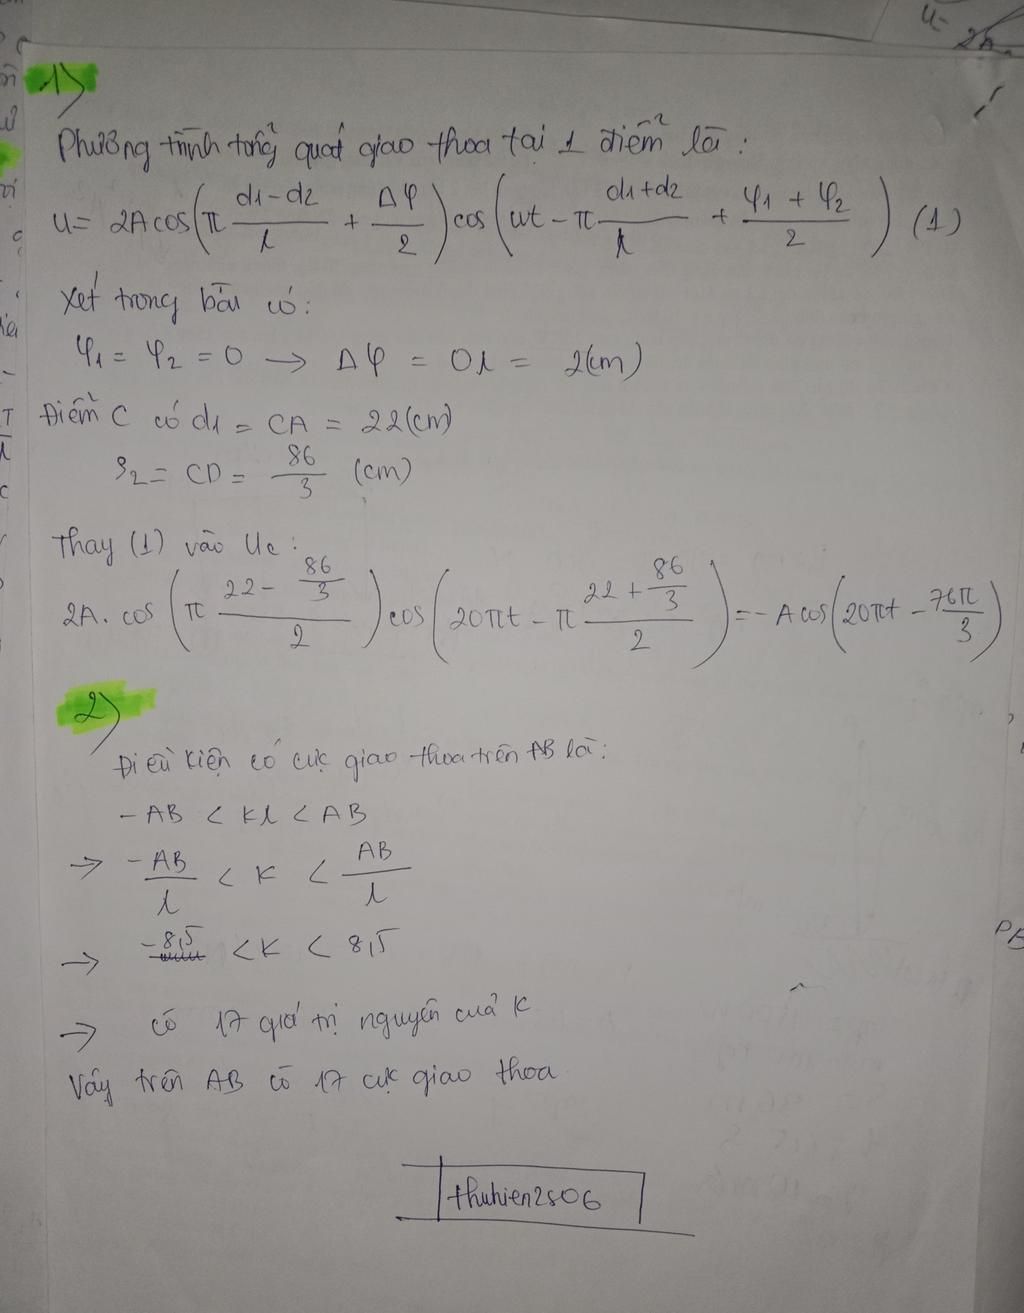 U=
2A
1)
Phương trình tổng quát giao thoa tại 1 điểm là:
U= 2A cos(π (d1-d2)/λ + Δφ/2) cos(ωt - π (d1+d2)/λ + (φ1 + φ2)/2) (1)
Xét trong bài có:
φ1 = φ2 = 0 → Δφ = 0λ = 2(cm)
Điểm C có d1 = CA = 22(cm)
S2 = CD = 86/3 (cm)
Thay (1) vào Uc:
2A. cos (π (22 - 86/3)/2) cos (20πt - π (22 + 86/3)/2) = - A cos(20πt - 76π/3)
2)
Điều kiện có cực giao thoa trên AB là:
- AB < Kλ < AB
→ -AB/λ < K < AB/λ
→ -8,5 < K < 8,5
→ có 17 giá trị nguyên của K
Vậy trên AB có 17 cực giao thoa
thuhien2506